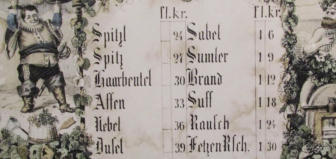 fl.kr. fl.kr.
Spitzl 24 Sabel 1 6
Spitz 27 Sumser 1 9
Haarbeutel 30 Brand 1 12
Affen 33 Suff 1 18
Nebel 36 Rausch 1 24
Dusel 39 Fetzen Rsch. 1 30